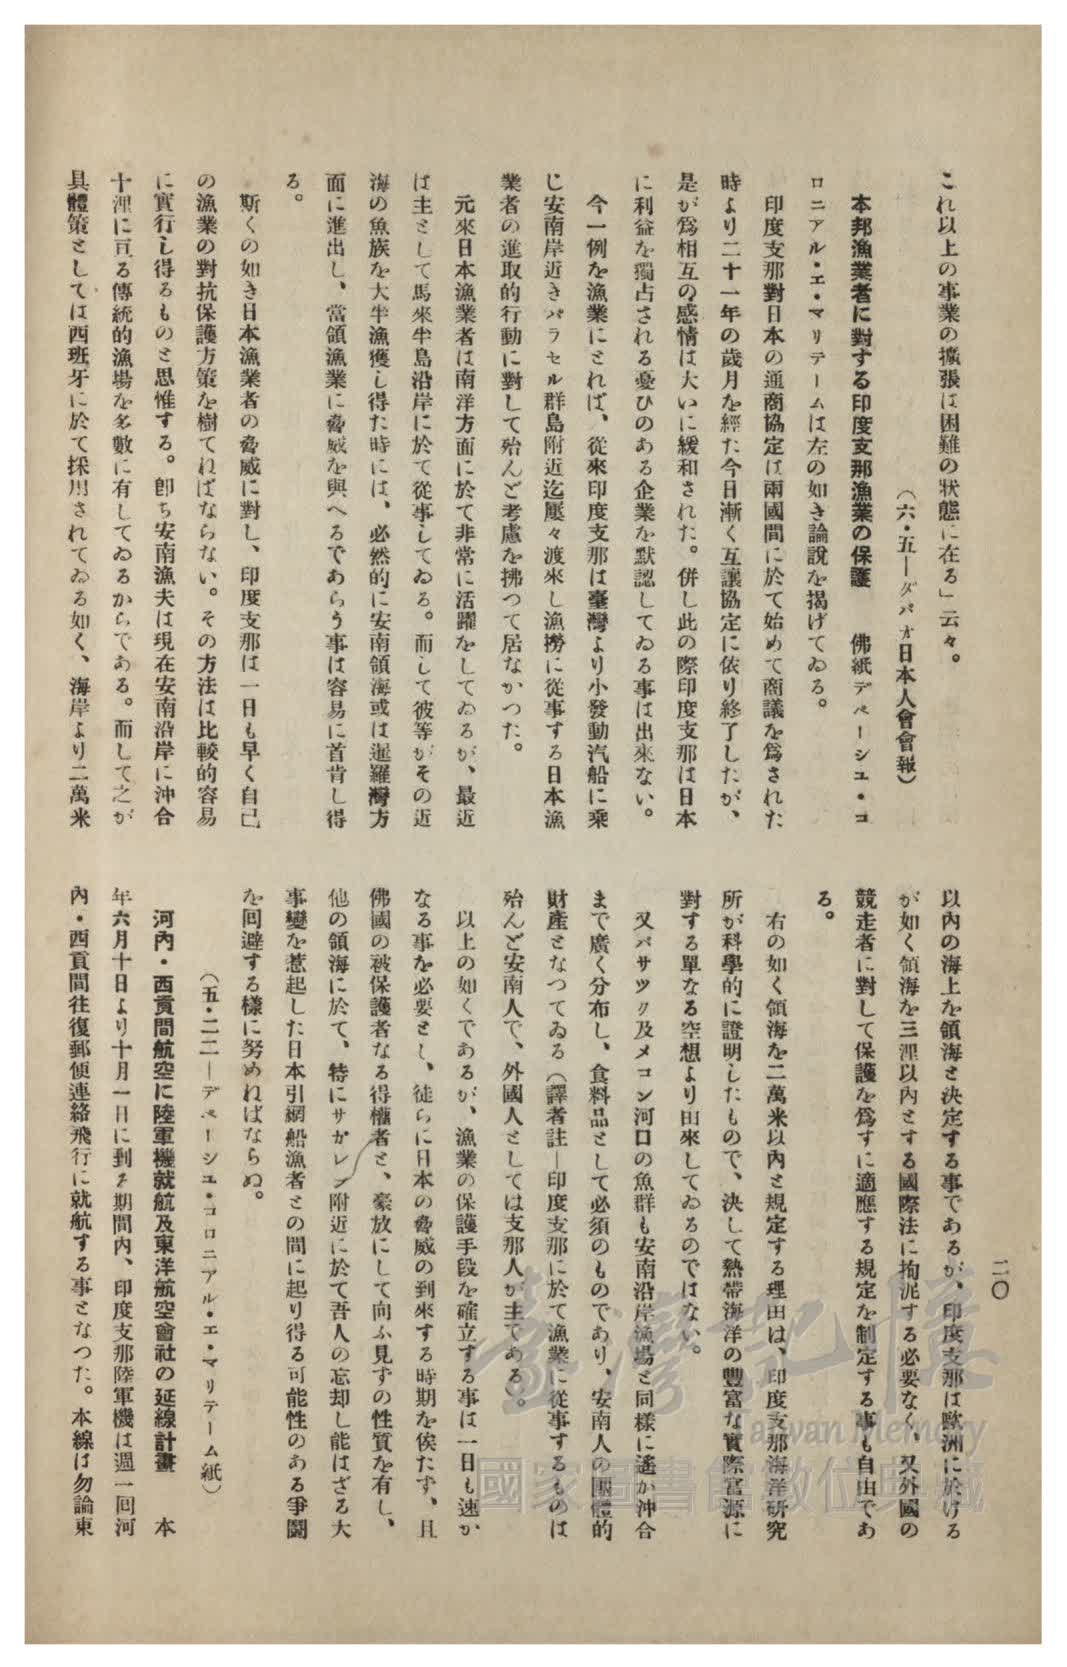 これ以上の事業の擴張は困難の狀態に在る」云々。
(六・五―ダバオ日本人會會報)
本邦漁業者に對する印度支那漁業の保護　佛紙デペーシユ・コ
ロニアル・エ・マリテームは左の如き論說を揭げてゐる。
印度支那對日本の通商協定は兩國間に於て始めて商議を爲された
時より二十一年の歲月を經た今日漸く互讓協定に依り終了したが、
是が爲相互の感情は大いに緩和された。併し此の際印度支那は日本
に利益を獨占される憂ひのある企業を默認してゐる事は出來ない。
今一例を漁業にとれば、從來印度支那は臺灣より小發動汽船に乘
じ安南岸近きパラセル群島附近迄屢々渡來し漁撈に從事する日本漁
業者の進取的行動に對して殆んど考慮を拂つて居なかつた。
元來日本漁業者は南洋方面に於て非常に活躍をしてゐるが、最近
は主として馬來半島沿岸に於て從事してゐる。而して彼等がその近
海の魚族を大半漁獲し得た時には、必然的に安南領海或は暹羅灣方
面に進出し、當領漁業に脅威を與へるであらう事は容易に首肯し得
る。
斯くの如き日本漁業者の脅威に對し、印度支那は一日も早く自己
の漁業の對抗保護方策を樹てねばならない。その方法は比較的容易
に實行し得るものと思惟する。卽ち安南漁夫は現在安南沿岸に沖合
十浬に亘る傳統的漁場を多數に有してゐるからである。而して之が
具體策としては西班牙に於て採用されてゐる如く、海岸より二萬米
以內の海上を領海と決定する事であるが、印度支那は歐洲に於ける
が如く領海を三浬以內とする國際法に拘泥する必要なく、又外國の
競走者に對して保護を爲すに適應する規定を制定する事も自由であ
る。
右の如く領海を二萬米以內と規定する理由は、印度支那海洋硏究
所が科學的に證明したもので、決して熱帶海洋の豐富な實際富源に
對する單なる空想より由來してゐるのではない。
又バサツク及メコン河口の魚群も安南沿岸漁場と同樣に遙か沖合
まで廣く分布し、食料品として必須のものであり、安南人の團體的
財產となつてゐる(譯者註―印度支那に於て漁業に從事するものは
殆んど安南人で、外國人としては支那人が主である)。
以上の如くであるが、漁業の保護手段を確立する事は一日も速か
なる事を必要とし、徒らに日本の脅威の到來する時期を俟たず、且
佛國の被保護者なる得權者と、豪放にして向ふ見ずの性質を有し、
他の領海に於て、特にサガレン附近に於て吾人の忘却し能はざる大
事變を惹起した日本引網船漁者との間に起り得る可能性のある爭鬪
を回避する樣に努めねばならぬ。
(五・二二―デペーシユ・コロニアル・エ・マリテーム紙)
河內・西貢間航空に陸軍機就航及東洋航空會社の延線計畫　本
年六月十日より十月一日に到る期間內、印度支那陸軍機は週一回河
內・西貢間往復郵便連絡飛行に就航する事となつた。本線は勿論東
二〇
臺灣記憶
Taiwan Memory
國家圖書館數位典藏